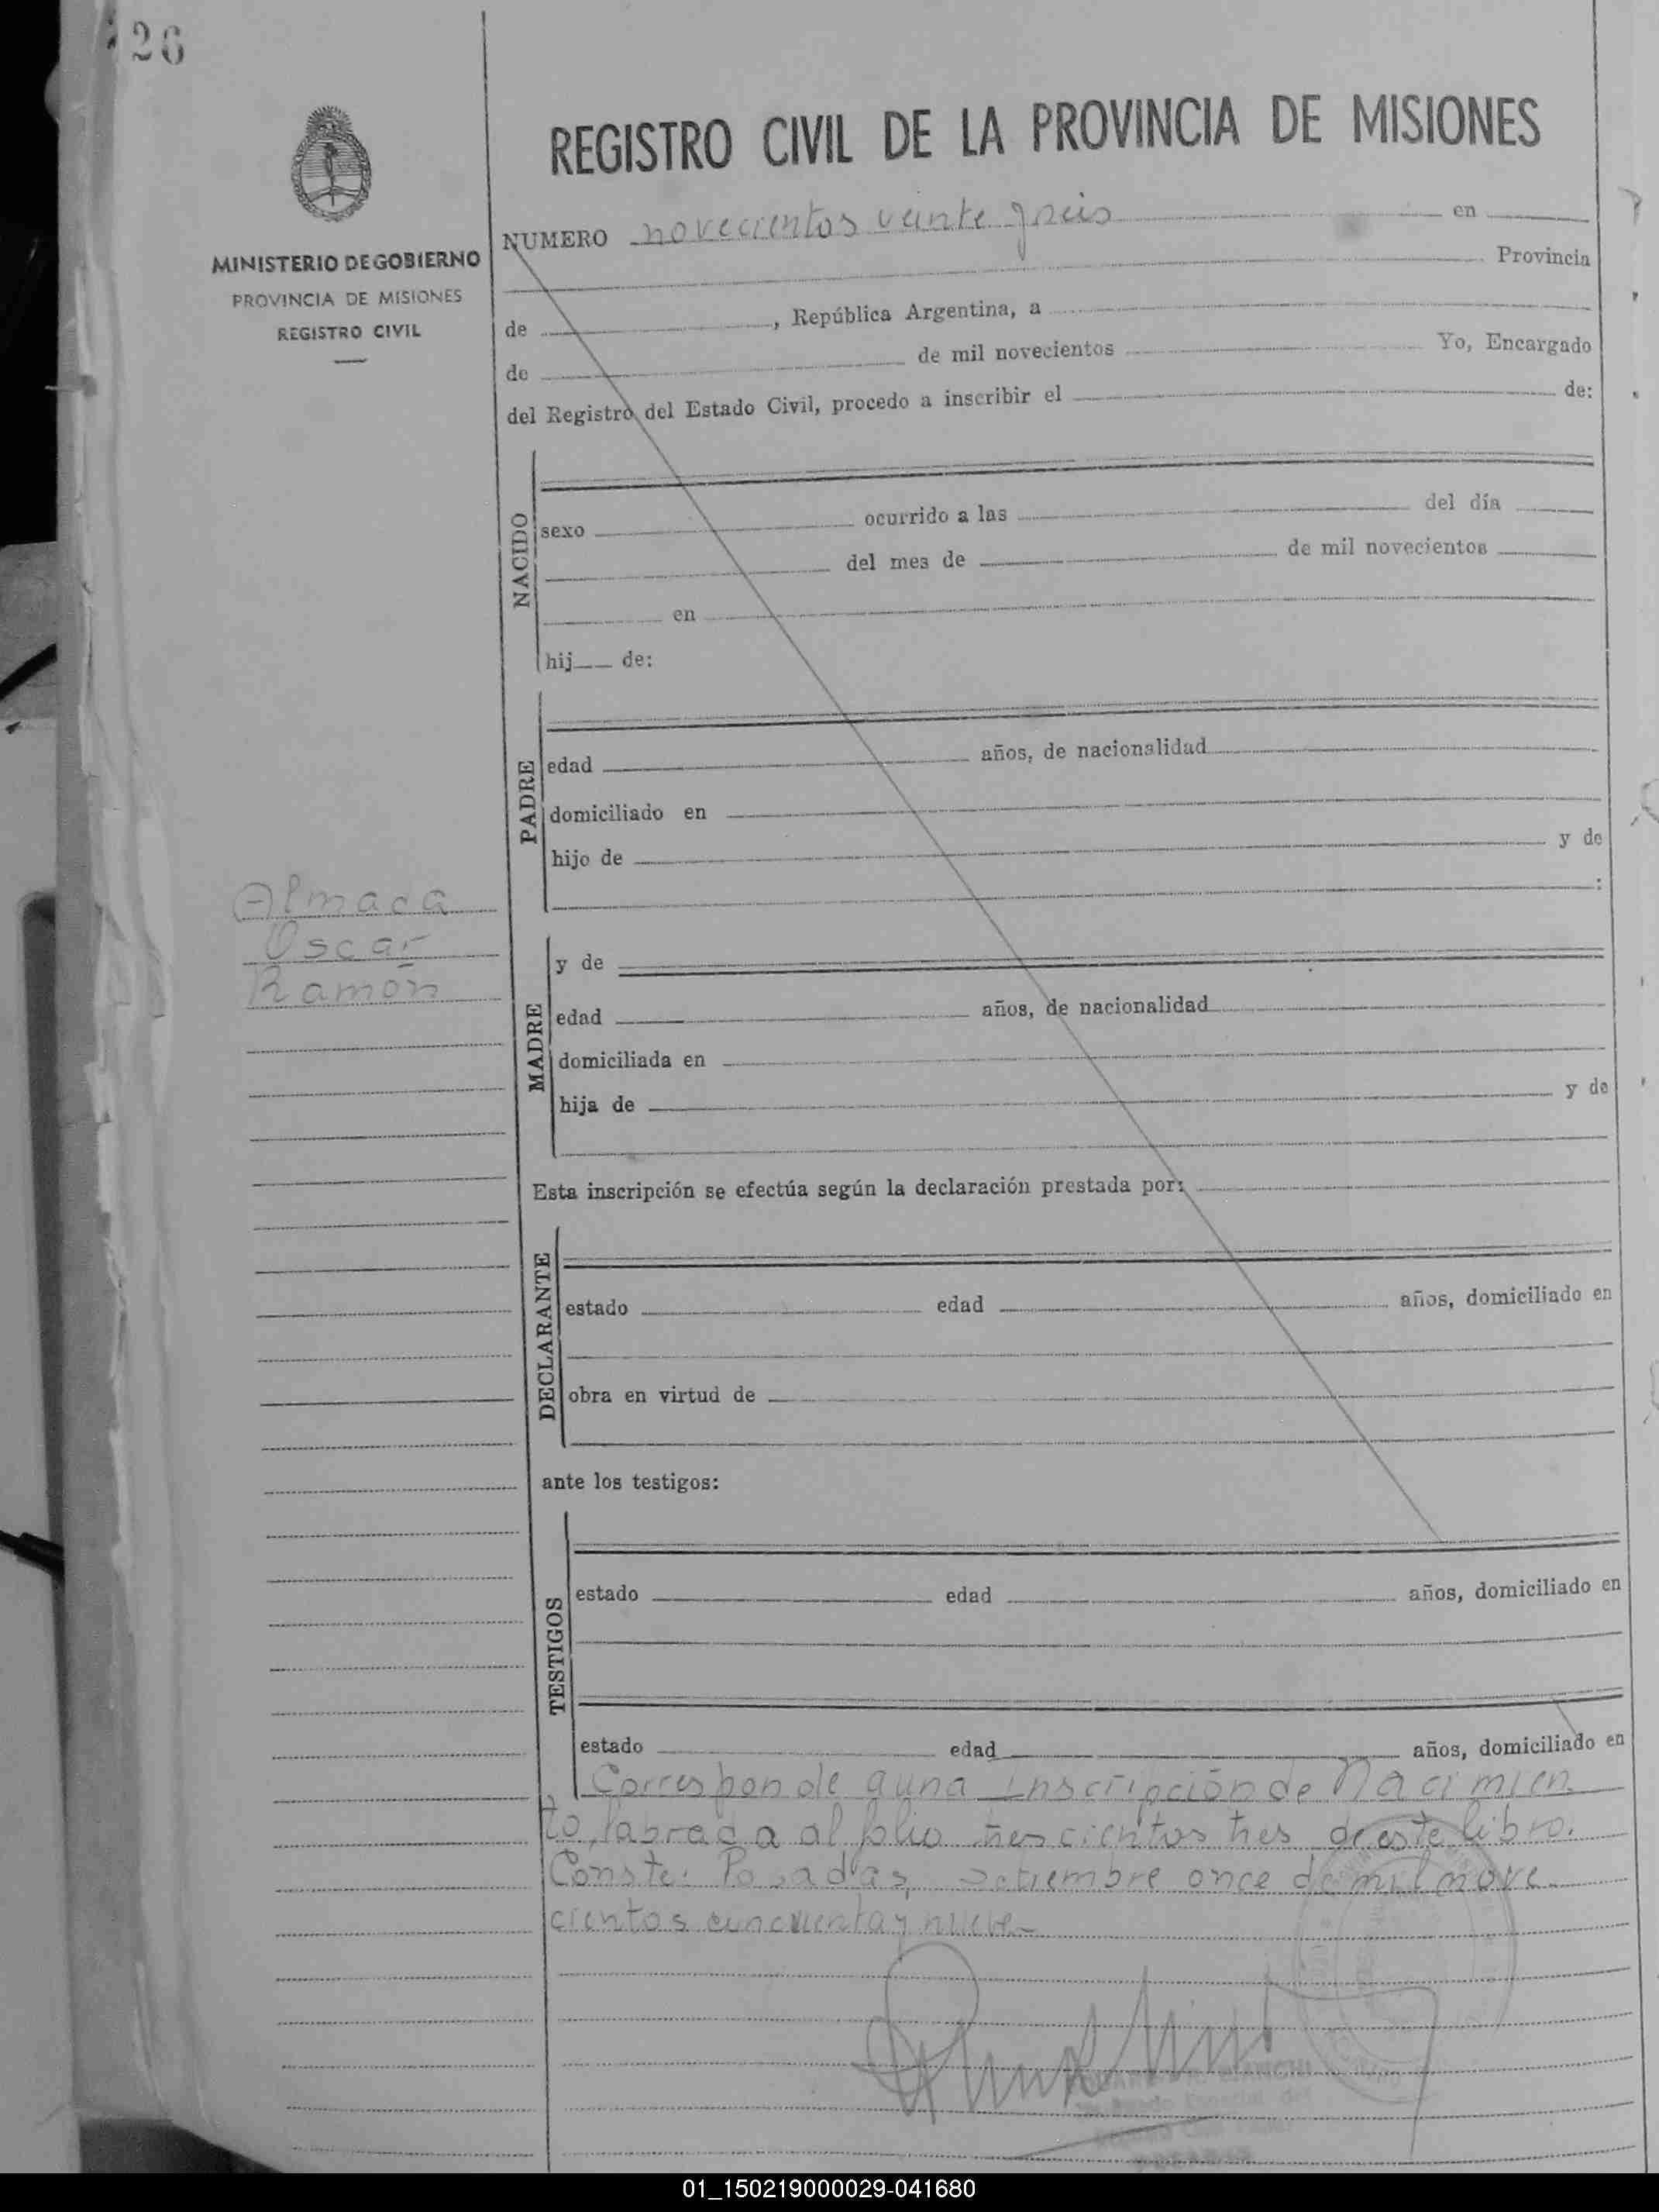 26
REGISTRO CIVIL DE LA PROVINCIA DE MISIONES
MINISTERIO DE GOBIERNO
PROVINCIA DE MISIONES
REGISTRO CIVIL
NUMERO novecientos veinte y seis en
Provincia
de , República Argentina, a
de de mil novecientos Yo, Encargado
del Registro del Estado Civil, procedo a inscribir el de:
NACIDO
sexo ocurrido a las del día
del mes de de mil novecientos
en
hij de:
PADRE
edad años, de nacionalidad
domiciliado en
hijo de y de
:
Almada
Oscar
Ramón
MADRE
y de
edad años, de nacionalidad
domiciliada en
hija de y de
Esta inscripción se efectúa según la declaración prestada por:
DECLARANTE
estado edad años, domiciliado en
obra en virtud de
ante los testigos:
TESTIGOS
estado edad años, domiciliado en
estado edad años, domiciliado en
Corresponde a una inscripción de Nacimien
to, labrada al folio trescientos tres de este libro.
Conste: Posadas, setiembre once de mil nove
cientos cincuenta y nueve.-
BIANCHI
01_150219000029-041680